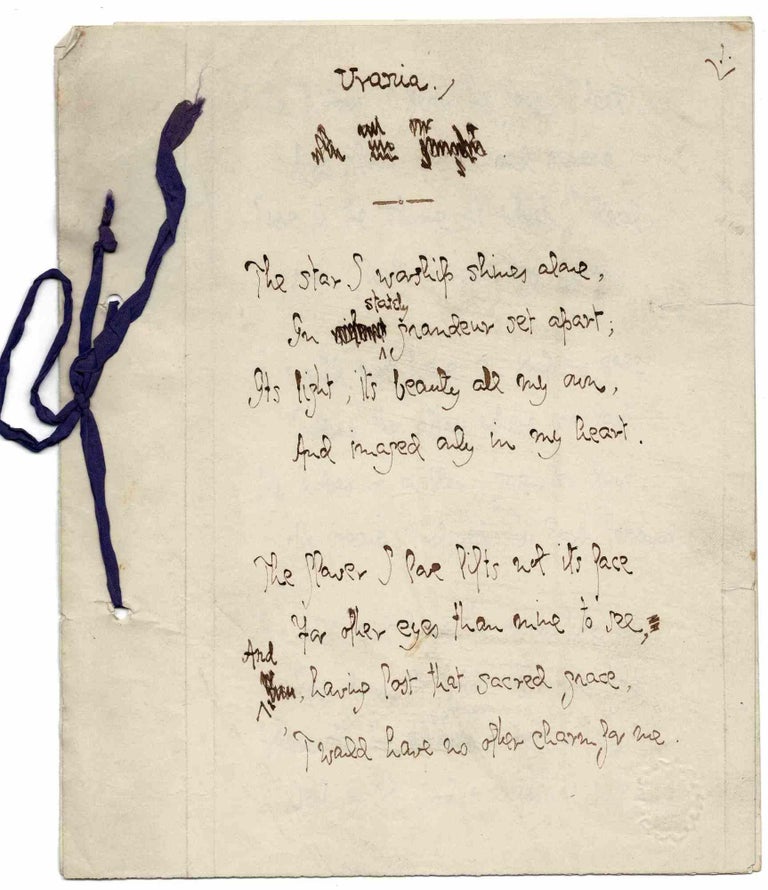 1.
Urania.
The star I worship shines alone,
In stately grandeur set apart;
Its light, its beauty all my own,
And imaged only in my heart.
The flower I love lifts not its face
For other eyes than mine to see,
And, having lost that sacred grace,
'Twould have no other charm for me.